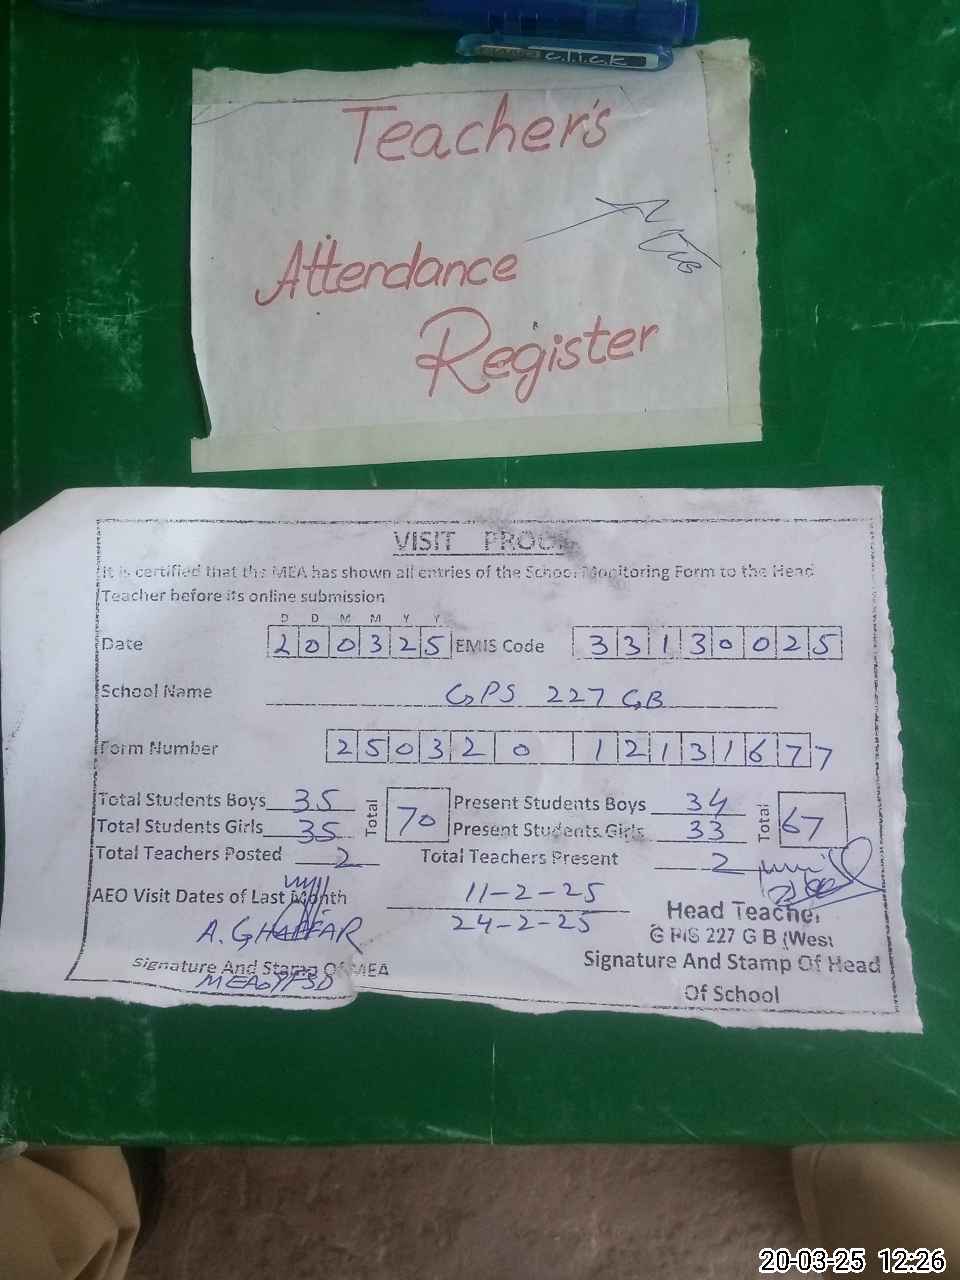 click
Teacher's
Attendance
Register
VISIT PROOF
It is certified that the MEA has shown all entries of the School Monitoring Form to the Head
Teacher before its online submission
D D M M Y Y
Date 200325 EMIS Code 33130025
School Name GPS 227 GB
Form Number 250320 12131677
Total Students Boys 35 Total 70 Present Students Boys 34 Total 67
Total Students Girls 35 Present Students Girls 33
Total Teachers Posted 2 Total Teachers Present 2
AEO Visit Dates of Last Month 11-2-25
24-2-25
A. GHAFFAR
Head Teacher
G P/S 227 G B (West
Signature And Stamp Of MEA
Signature And Stamp Of Head
Of School
20-03-25 12:26